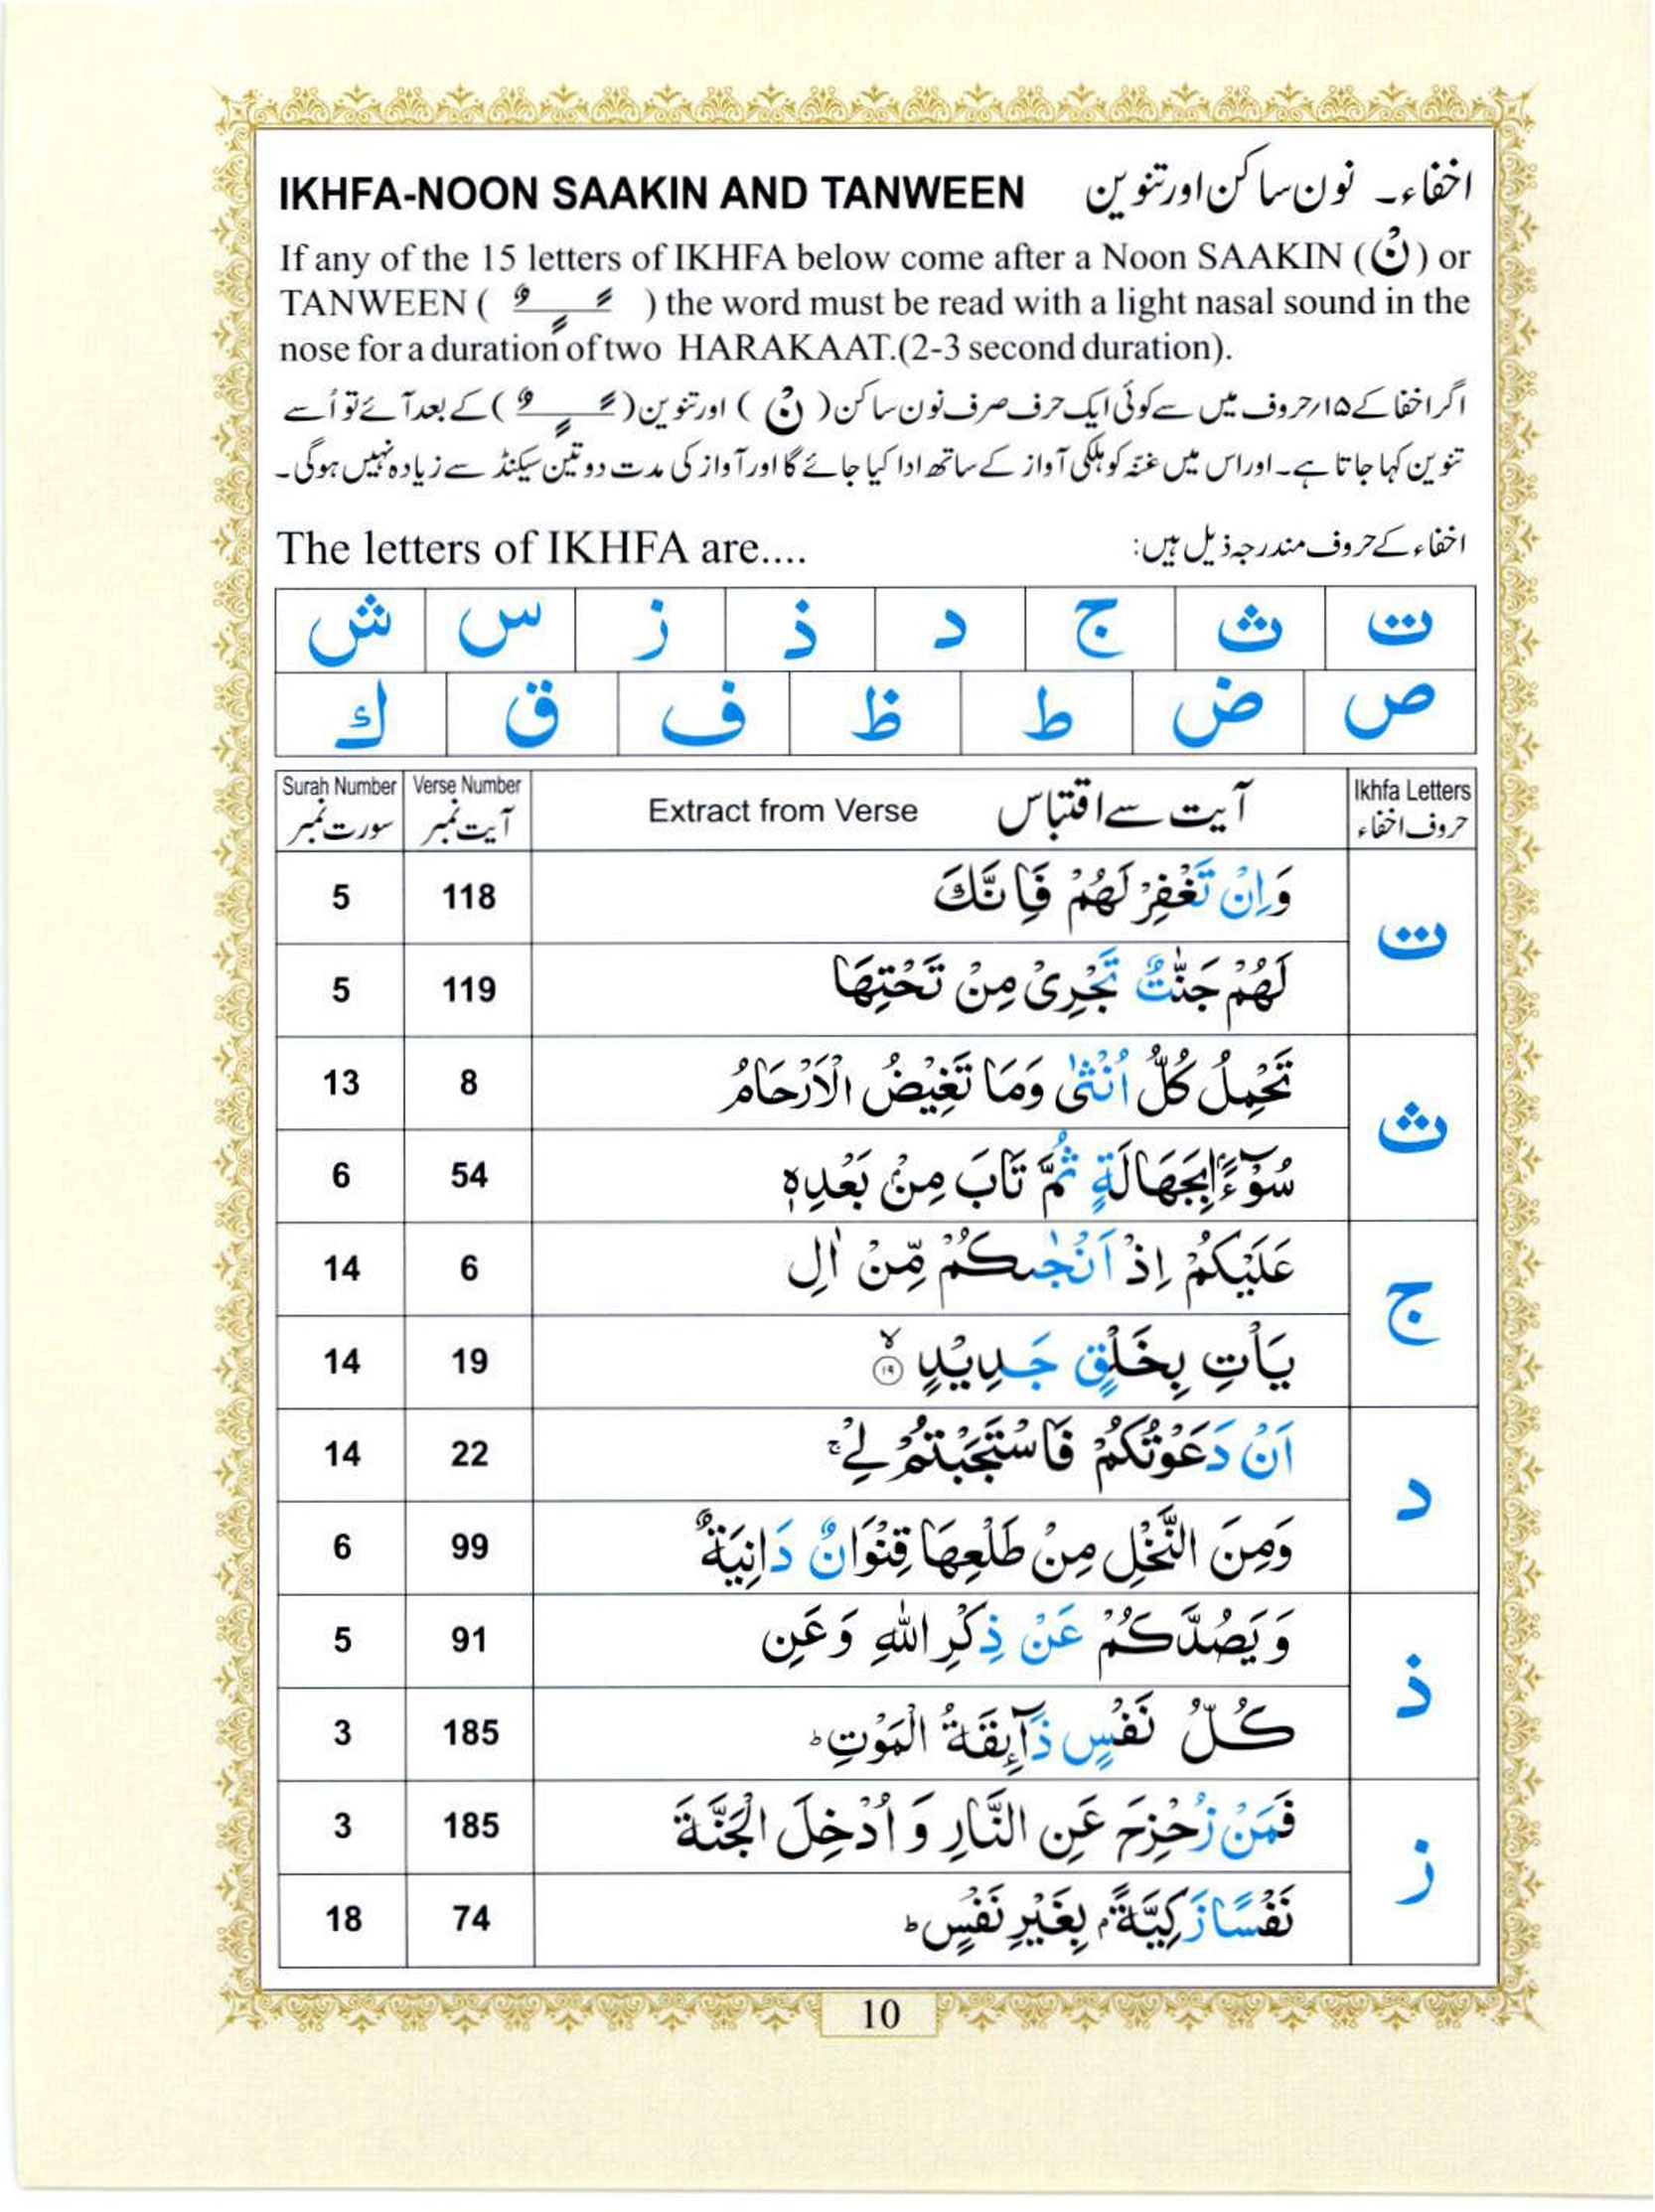 IKHFA-NOON SAAKIN AND TANWEEN اخفاء۔ نون ساکن اور تنوین
If any of the 15 letters of IKHFA below come after a Noon SAAKIN (نْ) or
TANWEEN ( ـًـٍـٌ ) the word must be read with a light nasal sound in the
nose for a duration of two HARAKAAT.(2-3 second duration).
اگر اخفا کے ۱۵؍حروف میں سے کوئی ایک حرف صرف نون ساکن (نْ) اور تنوین (ـًـٍـٌ) کے بعد آئے تو اُسے
تنوین کہا جاتا ہے۔ اور اس میں غنّہ کو ہلکی آواز کے ساتھ ادا کیا جائے گا اور آواز کی مدت دو تین سیکنڈ سے زیادہ نہیں ہوگی۔
The letters of IKHFA are.... اخفاء کے حروف مندرجہ ذیل ہیں:
ت ث ج د ذ ز س ش
ص ض ط ظ ف ق ك
Surah Number Verse Number Extract from Verse آیت سے اقتباس Ikhfa Letters
سورت نمبر آیت نمبر حروف اخفاء
5 118 وَاِنْ تَغْفِرْ لَهُمْ فَاِنَّكَ
ت
5 119 لَهُمْ جَنّٰتٌ تَجْرِىْ مِنْ تَحْتِهَا
13 8 تَحْمِلُ كُلُّ اُنْثٰى وَمَا تَغِيْضُ الْاَرْحَامُ
ث
6 54 سُوْٓءًۢا بِجَهَالَةٍ ثُمَّ تَابَ مِنْۢ بَعْدِهٖ
14 6 عَلَيْكُمْ اِذْ اَنْجٰىكُمْ مِّنْ اٰلِ
ج
14 19 يَاْتِ بِخَلْقٍ جَدِيْدٍ ۙ‏﴿۱۹﴾
14 22 اَنْ دَعَوْتُكُمْ فَاسْتَجَبْتُمْ لِىْ ۚ
د
6 99 وَمِنَ النَّخْلِ مِنْ طَلْعِهَا قِنْوَانٌ دَانِيَةٌ
5 91 وَيَصُدَّكُمْ عَنْ ذِكْرِ اللّٰهِ وَعَنِ
ذ
3 185 كُلُّ نَفْسٍ ذَآئِقَةُ الْمَوْتِ ؕ
3 185 فَمَنْ زُحْزِحَ عَنِ النَّارِ وَاُدْخِلَ الْجَنَّةَ
ز
18 74 نَفْسًا زَكِيَّةًۢ بِغَيْرِ نَفْسٍ ؕ
10